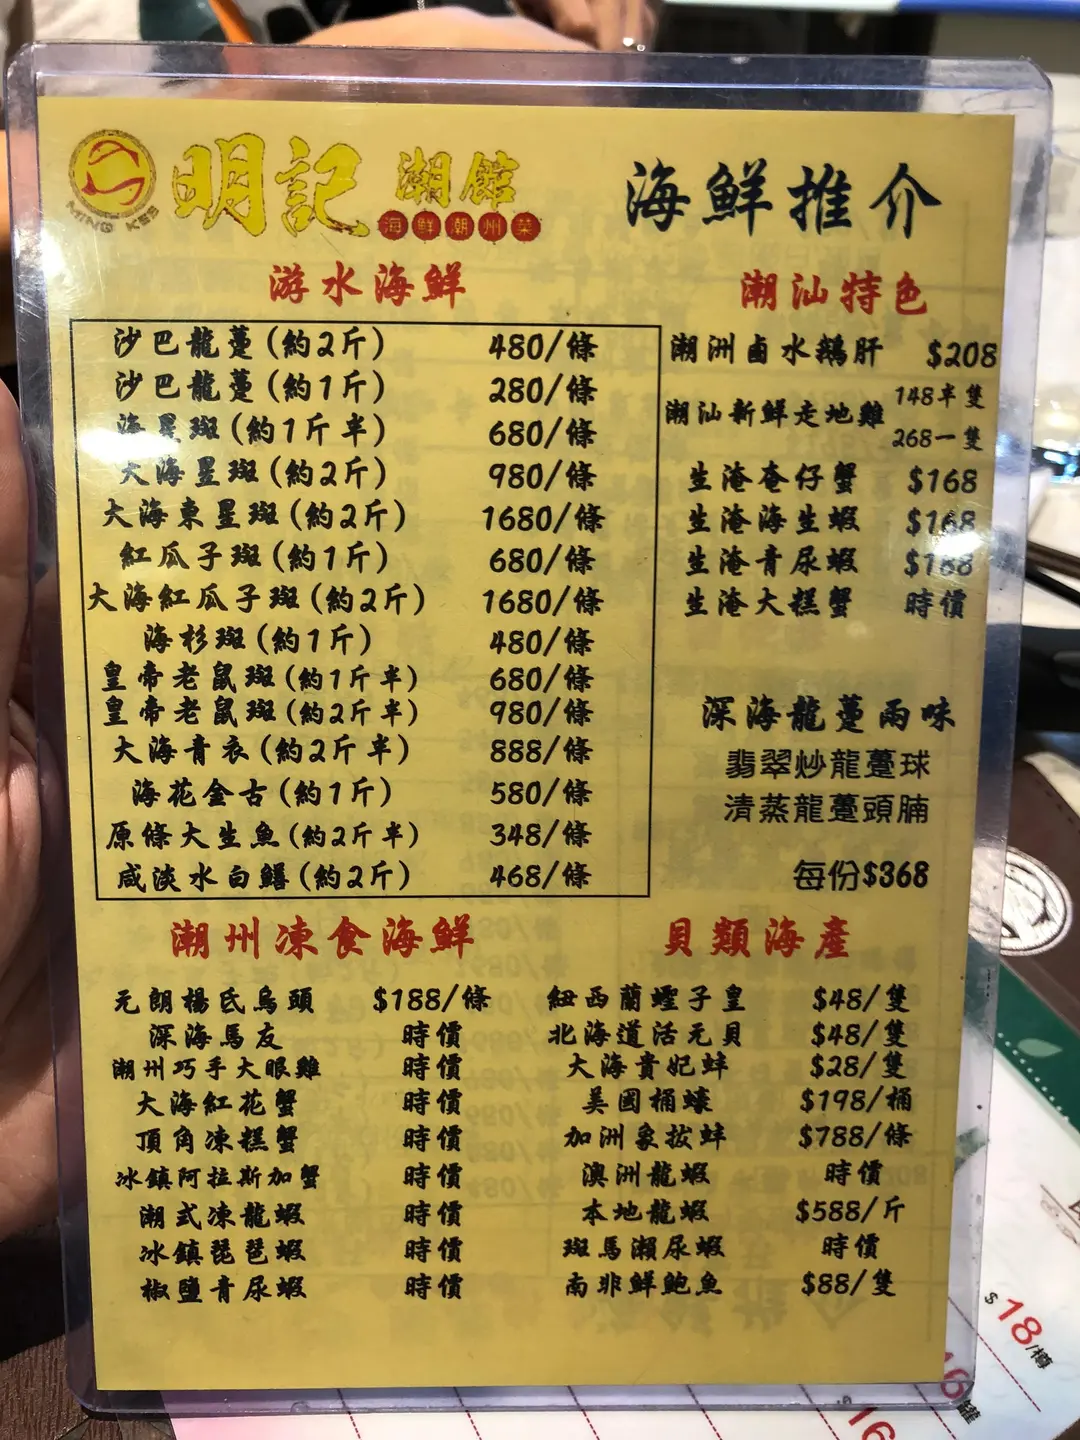 MING KEE
明記 潮館
海鮮潮州菜
海鮮推介
游水海鮮
沙巴龍躉(約2斤) 480/條
沙巴龍躉(約1斤) 280/條
海星斑(約1斤半) 680/條
大海星斑(約2斤) 980/條
大海東星斑(約2斤) 1680/條
紅瓜子斑(約1斤) 680/條
大海紅瓜子斑(約2斤) 1680/條
海杉斑(約1斤) 480/條
皇帝老鼠斑(約1斤半) 680/條
皇帝老鼠斑(約2斤半) 980/條
大海青衣(約2斤半) 888/條
海花金古(約1斤) 580/條
原條大生魚(約2斤半) 348/條
咸淡水白鱔(約2斤) 468/條
潮汕特色
潮洲鹵水鵝肝 $208
潮汕新鮮走地雞 148半隻
268一隻
生淹奄仔蟹 $168
生淹海生蝦 $168
生淹青尿蝦 $188
生淹大糕蟹 時價
深海龍躉兩味
翡翠炒龍躉球
清蒸龍躉頭腩
每份$368
潮州凍食海鮮
元朗楊氏烏頭 $188/條
深海馬友 時價
潮州巧手大眼雞 時價
大海紅花蟹 時價
頂角凍糕蟹 時價
冰鎮阿拉斯加蟹 時價
潮式凍龍蝦 時價
冰鎮琵琶蝦 時價
椒鹽青尿蝦 時價
貝類海產
紐西蘭蟶子皇 $48/隻
北海道活元貝 $48/隻
大海貴妃蚌 $28/隻
美國桶蠔 $198/桶
加洲象拔蚌 $788/條
澳洲龍蝦 時價
本地龍蝦 $588/斤
斑馬瀨尿蝦 時價
南非鮮鮑魚 $88/隻
$18/樽
16/罐
16